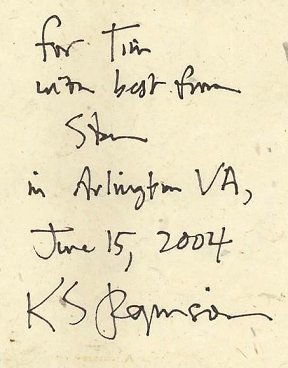 for Tim
with best from
Stan
in Arlington VA,
June 15, 2004
KS Robinson